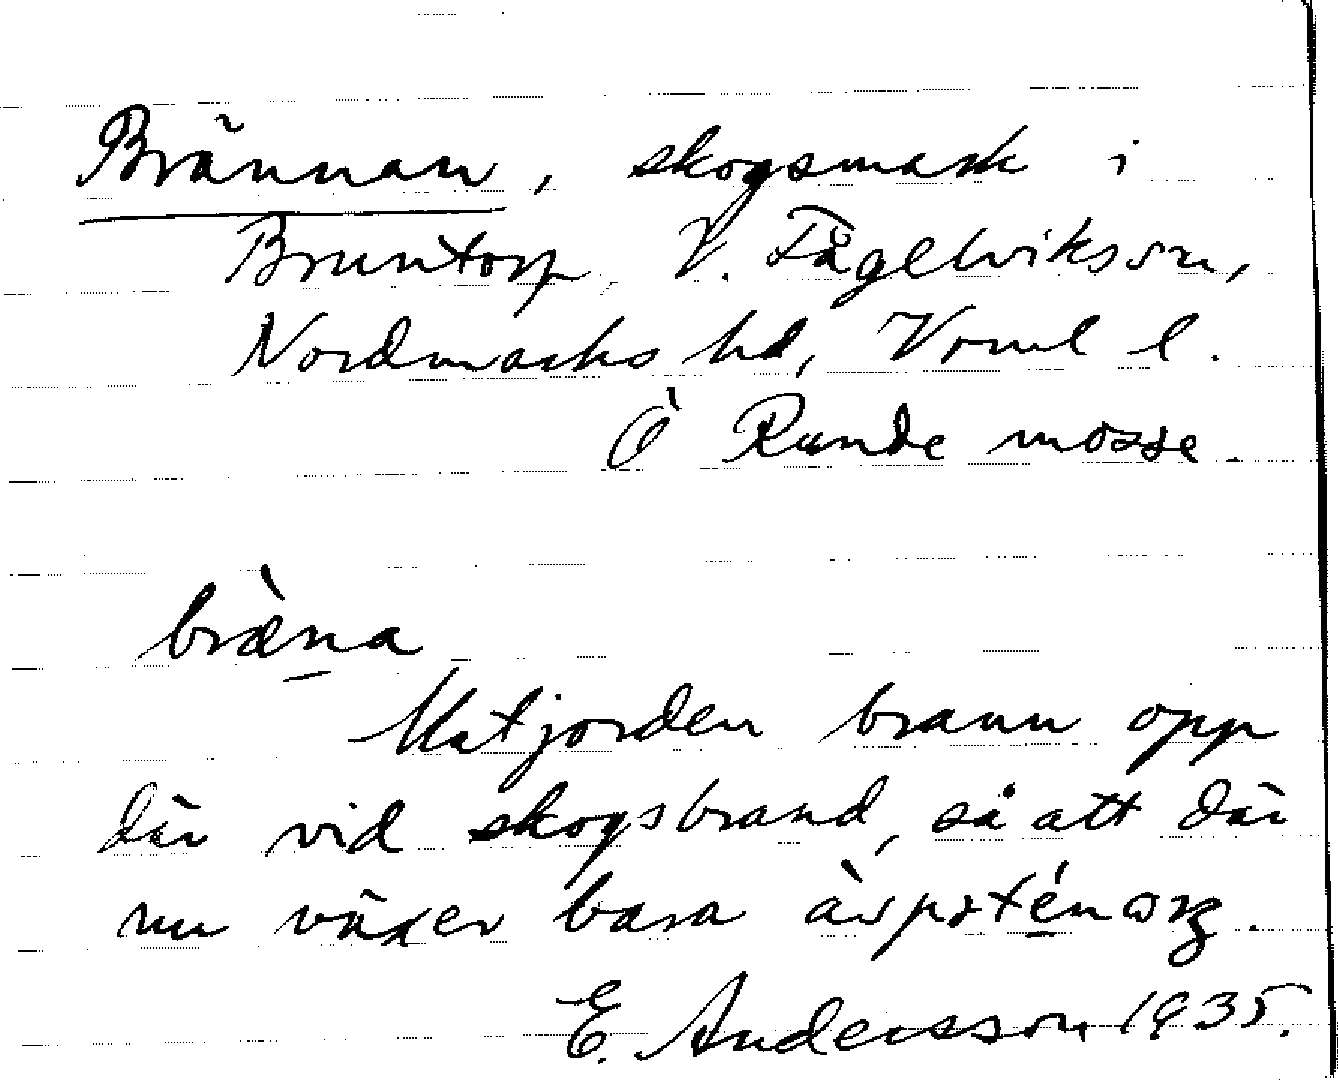 Brännan, skogsmark i
Bruntorp, V. Fågelviks sn,
Nordmarks hd, Vrml l.
Ö Runde mosse.
bræ̀na
Matjorden brann opp
där vid skogsbrand, så att där
nu växer bara
E. Andersson 1935.